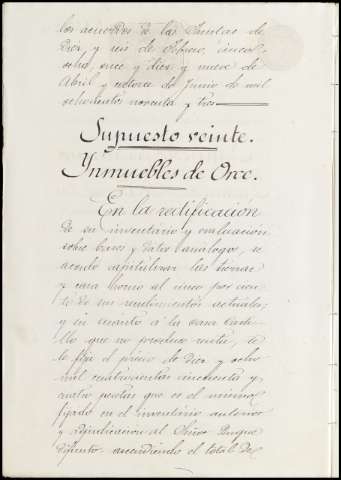 los acuerdos de las Juntas de
diez y seis de Febrero, cinco,
ocho, once y diez y nueve de
Abril y catorce de Junio de mil
ochocientos noventa y tres
Supuesto veinte.
Ynmuebles de Orce.
En la rectificación
de su inventario y evaluación
sobre bases y datos análogos, se
acordó capitalizar las tierras
y casa horno al cinco por cien-
to de sus rendimientos actuales;
y en cuanto á la casa Casti-
llo que no produce renta, se
le fija el precio de diez y ocho
mil cuatrocientas cincuenta y
cuatro pesetas que es el mismo
fijado en el inventario anterior
y adjudicación al Señor Duque
difunto, ascendiendo el total de